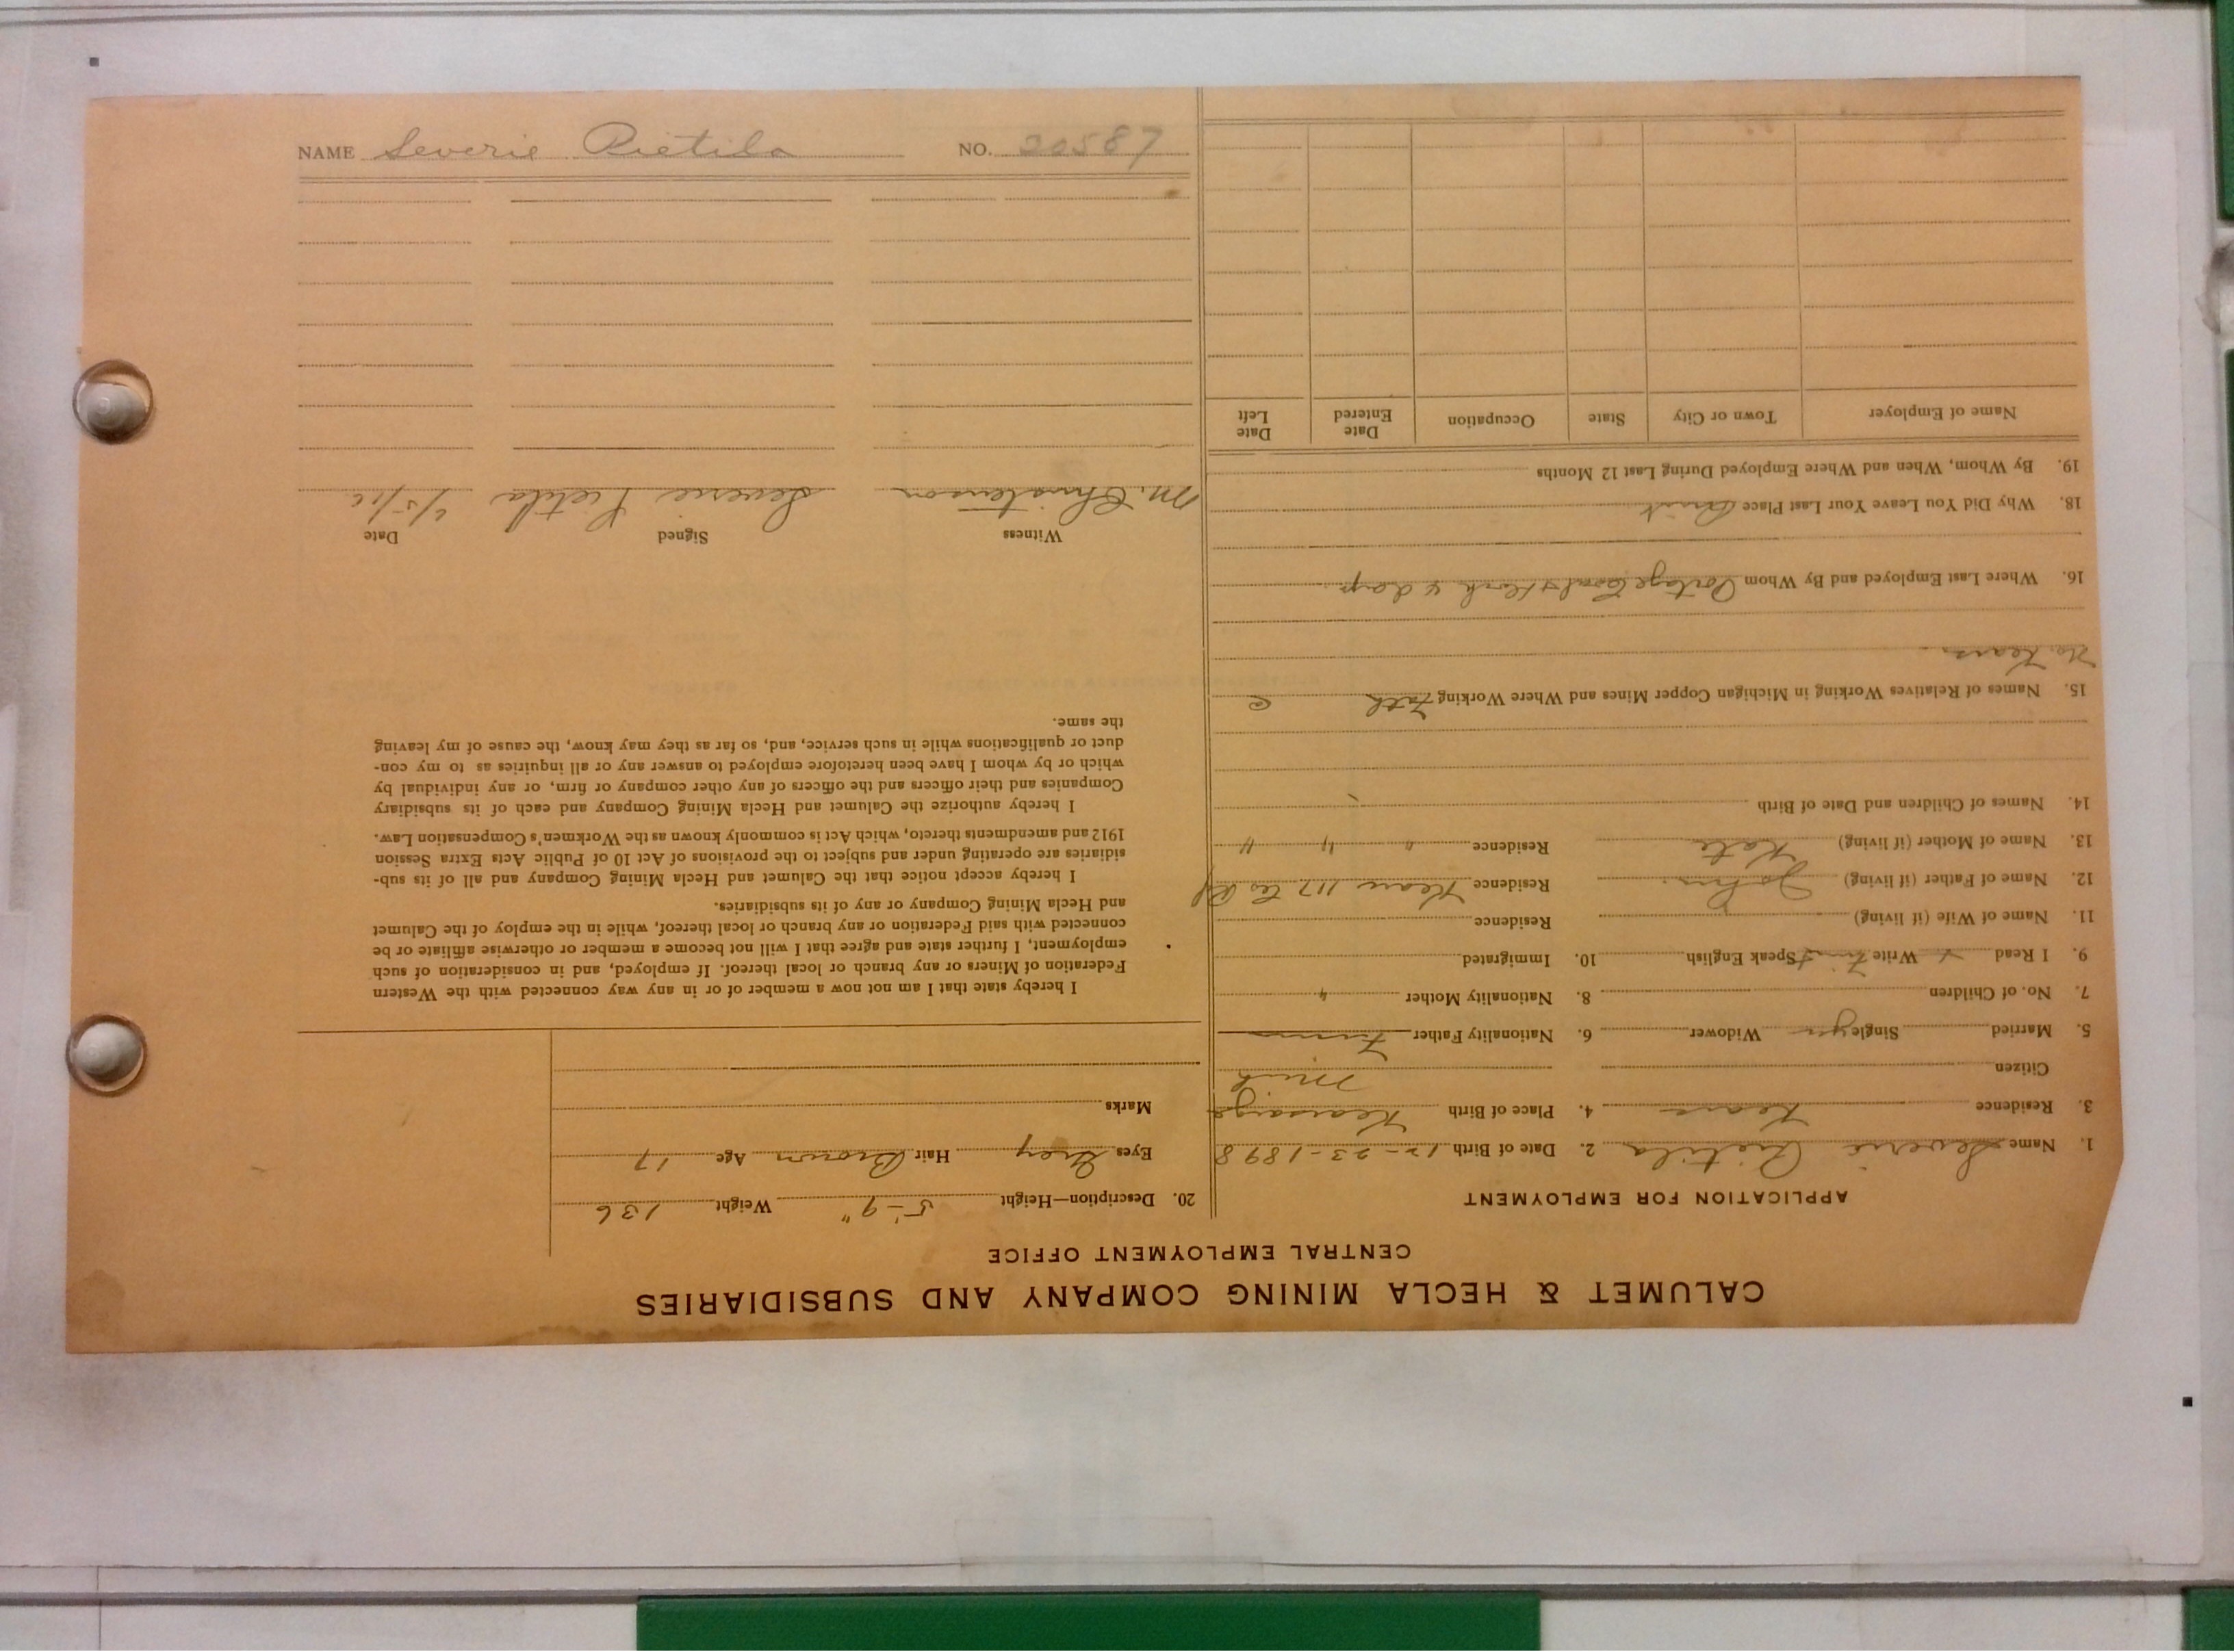 CALUMET & HECLA MINING COMPANY AND SUBSIDIARIES
CENTRAL EMPLOYMENT OFFICE
APPLICATION FOR EMPLOYMENT
1. Name Severie Pietila 2. Date of Birth 12-23-1898
3. Residence Kears 4. Place of Birth Kearsarge
Mich
Citizen
5. Married Single yes Widower 6. Nationality Father Finn
7. No. of Children 8. Nationality Mother "
9. I Read Write Speak English 10. Immigrated
11. Name of Wife (if living) Residence
12. Name of Father (if living) John Residence Kears 117
13. Name of Mother (if living) Kate Residence " " "
14. Names of Children and Date of Birth
15. Names of Relatives Working in Michigan Copper Mines and Where Working Fath
No. Kears.
16. Where Last Employed and By Whom Portage 4 days
18. Why Did You Leave Your Last Place Quit
19. By Whom, When and Where Employed During Last 12 Months
Name of Employer Town or City State Occupation Date Entered Date Left
20. Description—Height 5'-9" Weight 136
Eyes Grey Hair Brown Age 17
Marks
I hereby state that I am not now a member of or in any way connected with the Western
Federation of Miners or any branch or local thereof. If employed, and in consideration of such
employment, I further state and agree that I will not become a member or otherwise affiliate or be
connected with said Federation or any branch or local thereof, while in the employ of the Calumet
and Hecla Mining Company or any of its subsidiaries.
I hereby accept notice that the Calumet and Hecla Mining Company and all of its sub-
sidiaries are operating under and subject to the provisions of Act 10 of Public Acts Extra Session
1912 and amendments thereto, which Act is commonly known as the Workmen's Compensation Law.
I hereby authorize the Calumet and Hecla Mining Company and each of its subsidiary
Companies and their officers and the officers of any other company or firm, or any individual by
which or by whom I have been heretofore employed to answer any or all inquiries as to my con-
duct or qualifications while in such service, and, so far as they may know, the cause of my leaving
the same.
Witness Signed Date
M. Christenson Severie Pietila
NAME Severie Pietila NO. 20587